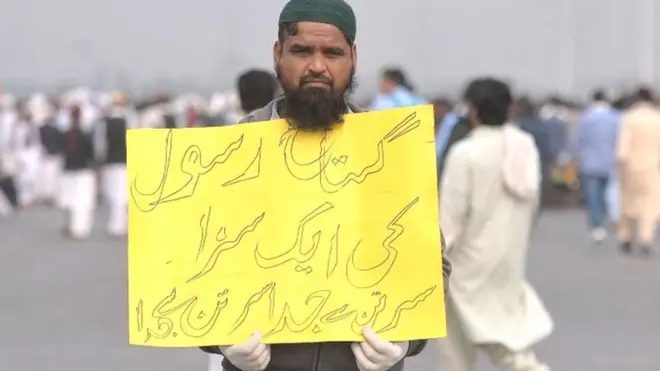 گستاخ رسول
کی ایک سزا
سر تن سے جدا سر تن سے جدا